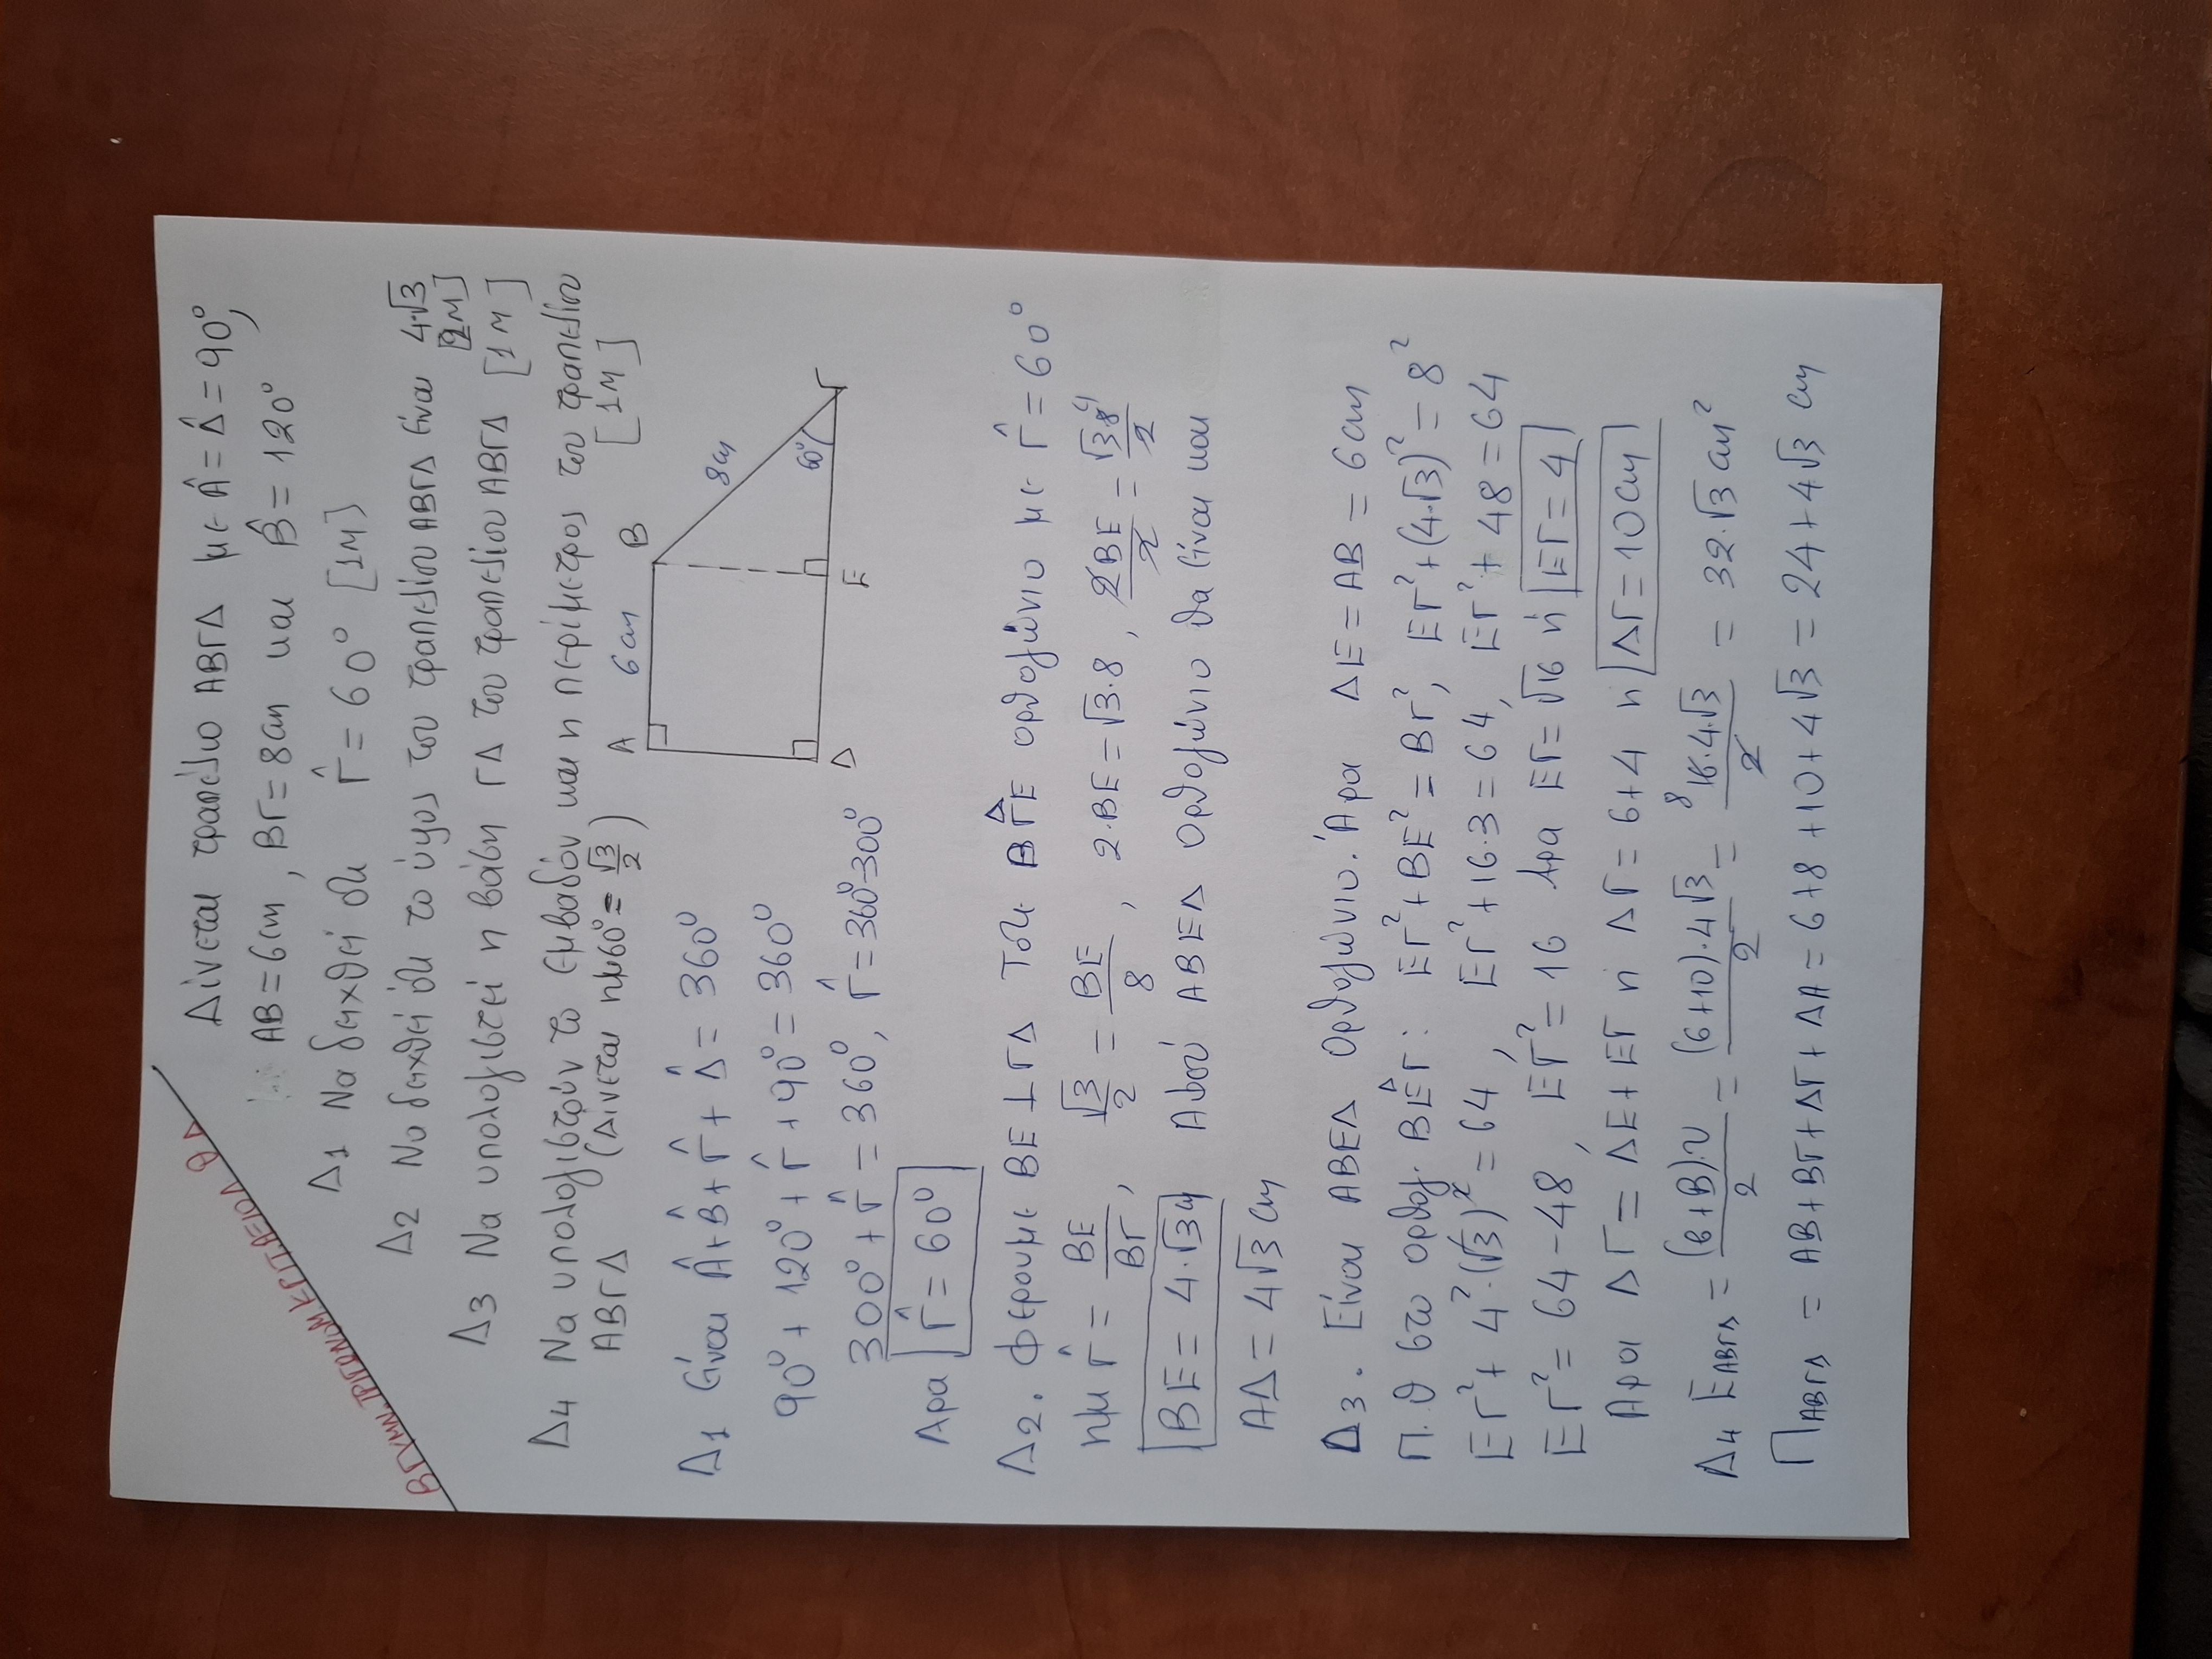 Β ΓΥΜΝ. ΤΡΙΓΩΝΟΜ.
Δίνεται τραπέζιο ΑΒΓΔ με Α̂ = Δ̂ = 90°,
ΑΒ = 6cm, ΒΓ = 8cm και Β̂ = 120°
Δ1 Να δειχθεί ότι Γ̂ = 60° [1Μ]
Δ2 Να δειχθεί ότι το ύψος του τραπεζίου ΑΒΓΔ είναι 4√3
[2Μ]
Δ3 Να υπολογιστεί η βάση ΓΔ του τραπεζίου ΑΒΓΔ [1Μ]
Δ4 Να υπολογιστούν το εμβαδόν και η περίμετρος του τραπεζίου
ΑΒΓΔ (Δίνεται ημ60° = √3/2) [1Μ]
Α 6cm Β
8cm
60°
Δ Ε Γ
Δ1 Είναι Α̂+Β̂+Γ̂+Δ̂ = 360°
90° + 120° + Γ̂ + 90° = 360°
300° + Γ̂ = 360°, Γ̂ = 360°-300°
Άρα Γ̂ = 60°
Δ2. Φέρουμε ΒΕ ⊥ ΓΔ Τότε ΒΓΕ ορθογώνιο με Γ̂ = 60°
ημ Γ̂ = ΒΕ/ΒΓ, √3/2 = ΒΕ/8, 2·ΒΕ = √3·8, 2ΒΕ/2 = √3·8/2 4
ΒΕ = 4·√3 Αφού ΑΒΕΔ ορθογώνιο θα είναι και
ΑΔ = 4√3 cm
Δ3. Είναι ΑΒΕΔ ορθογώνιο. Άρα ΔΕ = ΑΒ = 6cm
Π.Θ στο ορθογ. ΒΕΓ: ΕΓ²+ΒΕ² = ΒΓ², ΕΓ²+(4·√3)² = 8²
ΕΓ² + 4²·(√3)² = 64, ΕΓ²+16·3 = 64, ΕΓ²+48 = 64
ΕΓ² = 64-48, ΕΓ² = 16 Άρα ΕΓ = √16 ή ΕΓ = 4
Άρα ΔΓ = ΔΕ+ΕΓ ή ΔΓ = 6+4 ή ΔΓ = 10cm
Δ4 Ε ΑΒΓΔ = (β+Β)·υ/2 = (6+10)·4√3/2 = 8 16·4√3/2 = 32·√3 cm²
Π ΑΒΓΔ = ΑΒ+ΒΓ+ΔΓ+ΔΑ = 6+8+10+4√3 = 24+4√3 cm